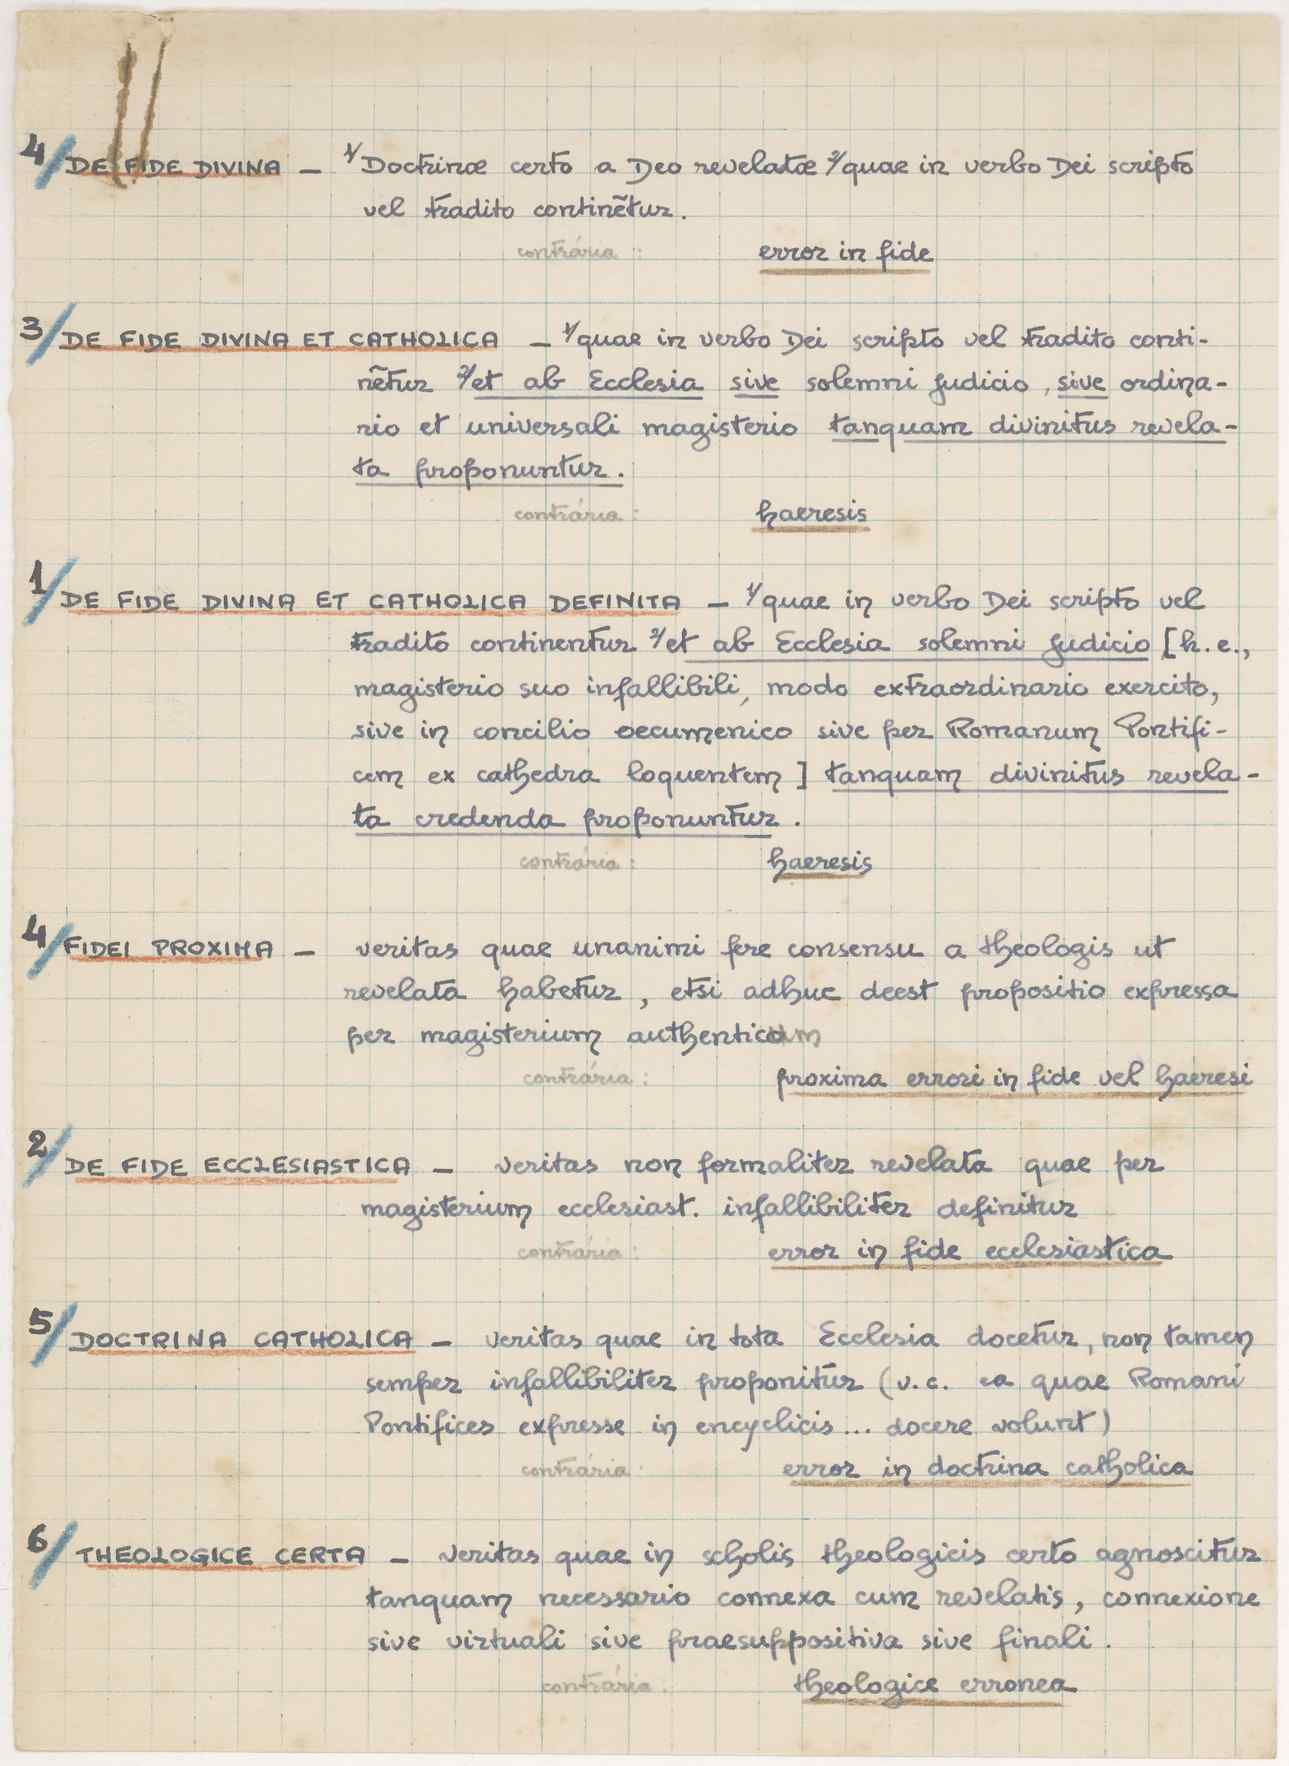 4/ DE FIDE DIVINA — 1/ Doctrinæ certo a Deo revelatæ 2/ quae in verbo Dei scripto
vel tradito continētur.
contrária : error in fide
3/ DE FIDE DIVINA ET CATHOLICA — 1/ quae in verbo Dei scripto vel tradito conti-
nētur 2/ et ab Ecclesia sive solemni judicio, sive ordina-
rio et universali magisterio tanquam divinitus revela-
ta proponuntur.
contrária : haeresis
1/ DE FIDE DIVINA ET CATHOLICA DEFINITA — 1/ quae in verbo Dei scripto vel
tradito continentur 2/ et ab Ecclesia solemni judicio [h.e.,
magisterio suo infallibili, modo extraordinario exercito,
sive in concilio oecumenico sive per Romanum Pontifi-
cem ex cathedra loquentem] tanquam divinitus revela-
ta credenda proponuntur.
contrária : haeresis
4/ FIDEI PROXIMA — veritas quae unanimi fere consensu a theologis ut
revelata habetur, etsi adhuc deest propositio expressa
per magisterium authenticum
contrária : proxima errori in fide vel haeresi
2/ DE FIDE ECCLESIASTICA — veritas non formaliter revelata quae per
magisterium ecclesiast. infallibiliter definitur
contrária : error in fide ecclesiastica
5/ DOCTRINA CATHOLICA — veritas quae in tota Ecclesia docetur, non tamen
semper infallibiliter proponitur (v.c. ea quae Romani
Pontifices expresse in encyclicis... docere volunt)
contrária : error in doctrina catholica
6/ THEOLOGICE CERTA — veritas quae in scholis theologicis certo agnoscitur
tanquam necessario connexa cum revelatis, connexione
sive virtuali sive praesuppositiva sive finali.
contrária : theologice erronea